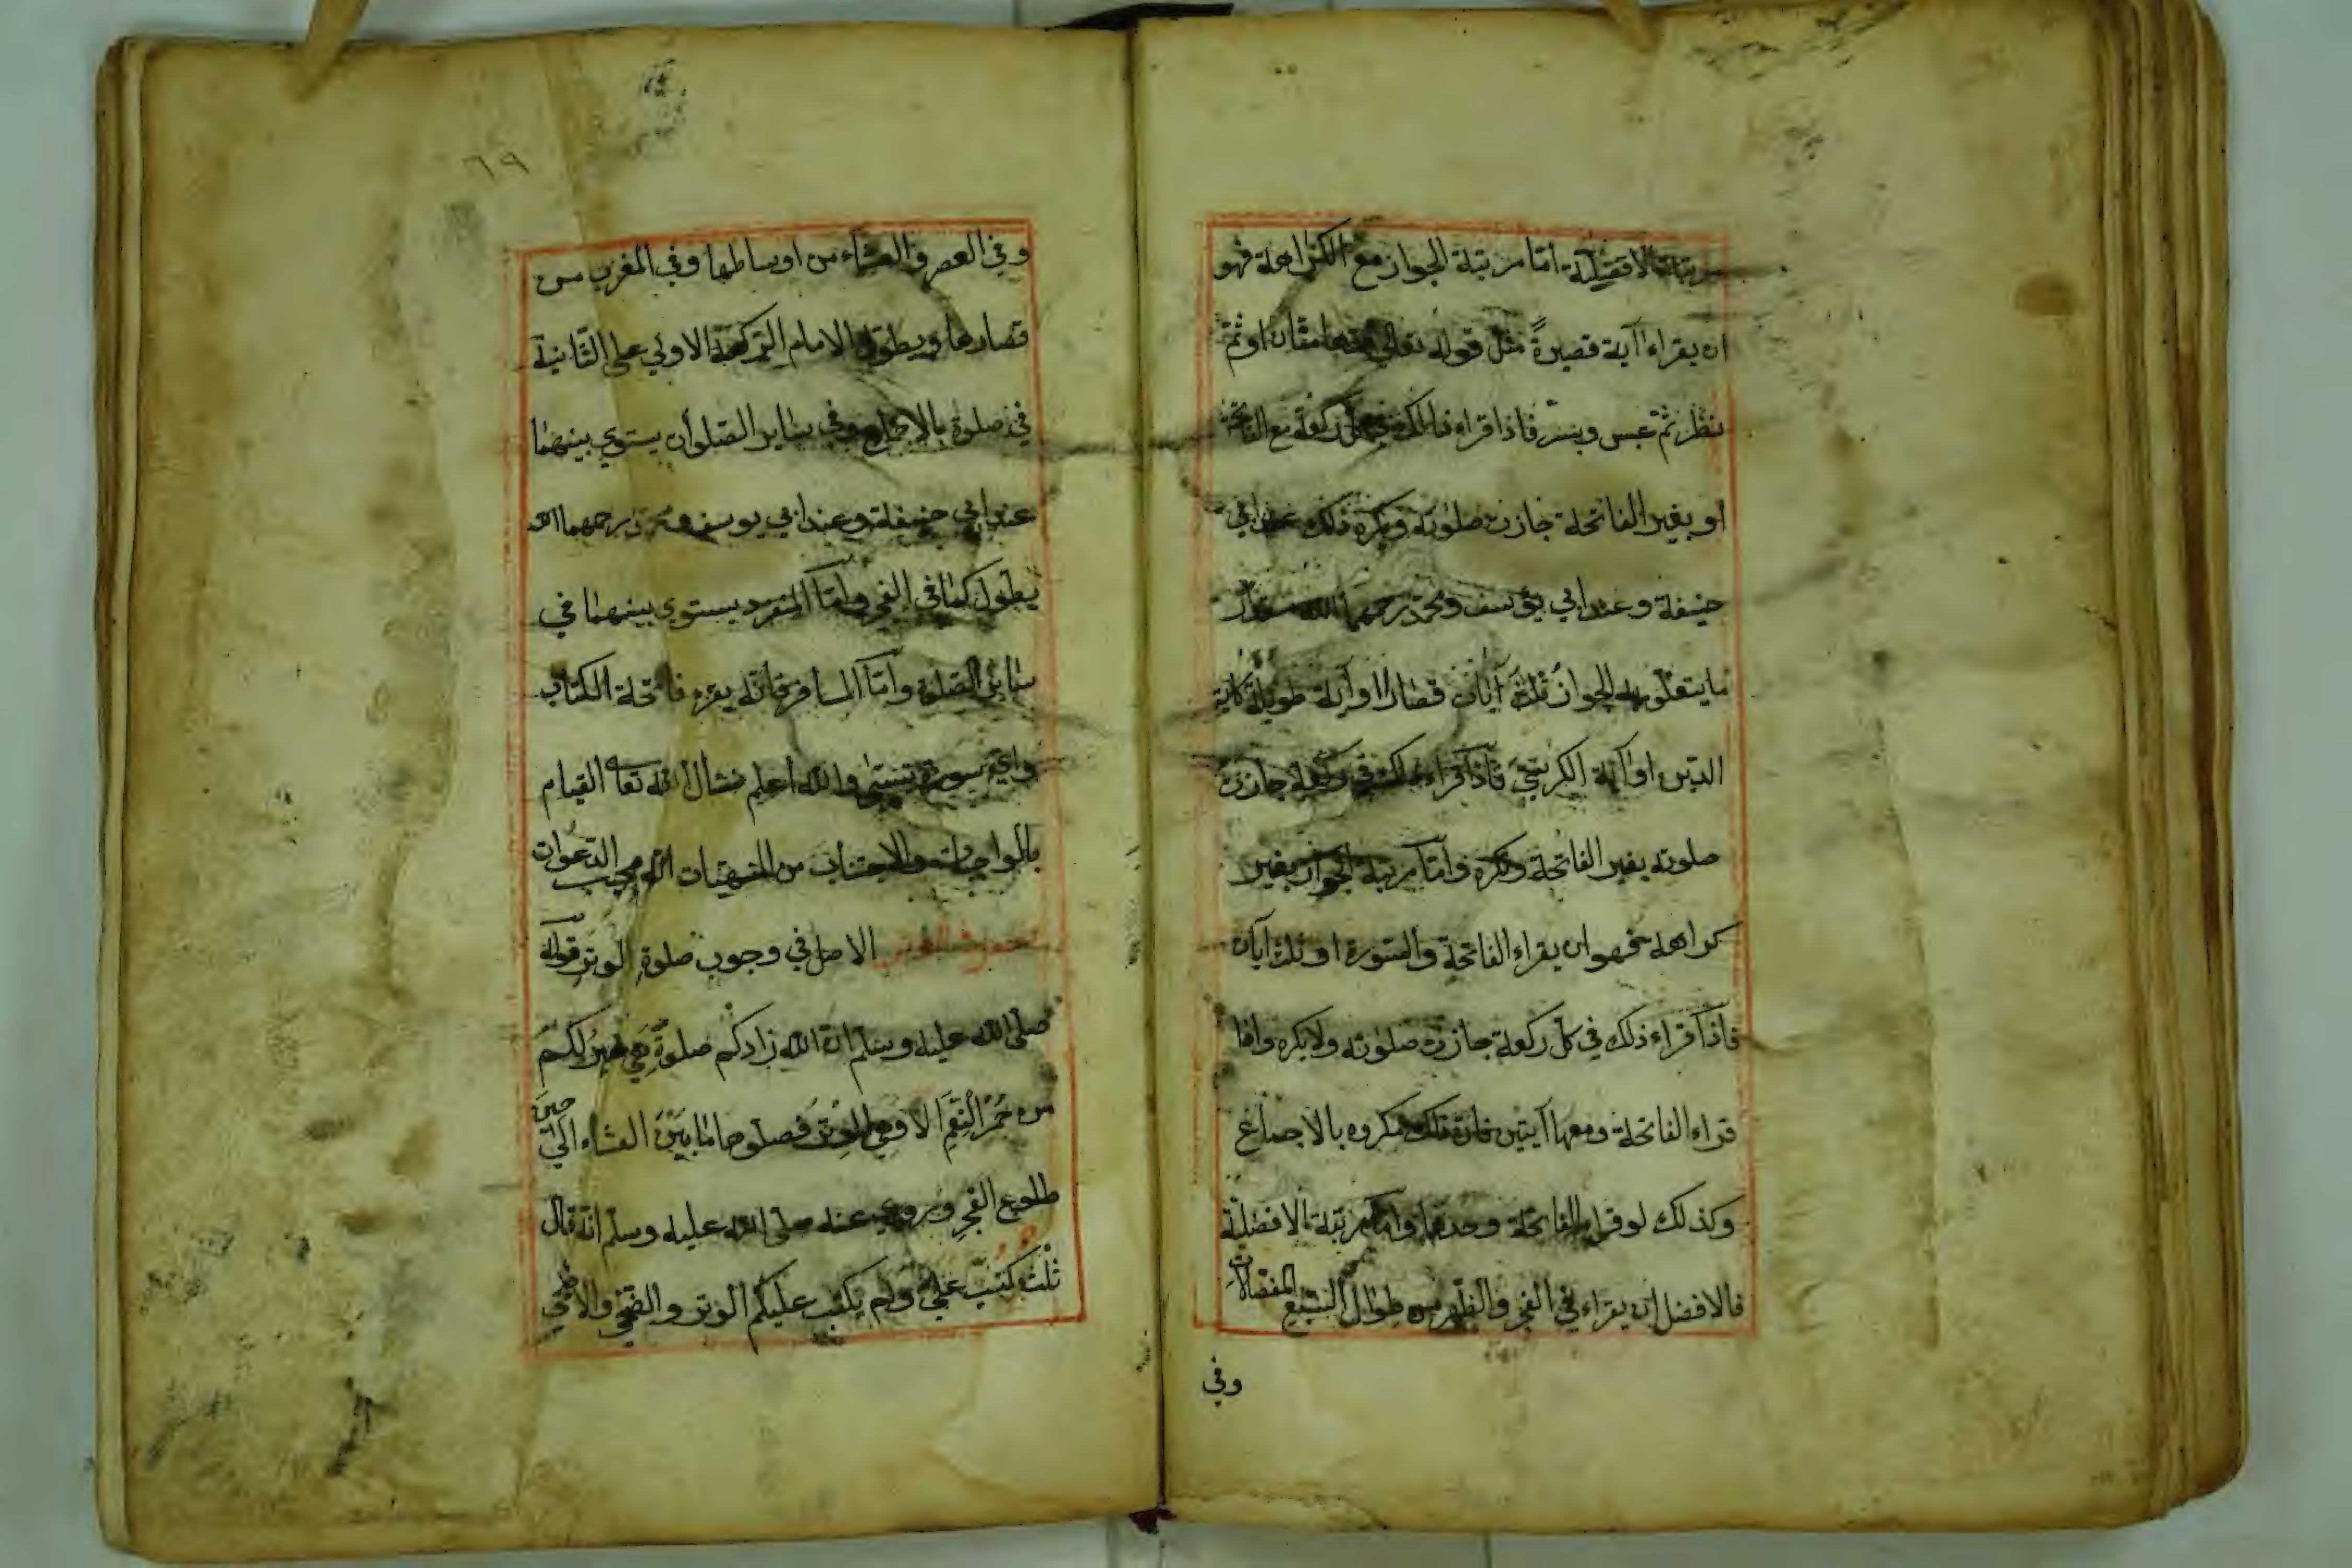 مرتبة الافضلية امّا مرتبة الجواز مع الكراهة فهو
ان يقراء اٰية قصيرةً مثل قوله تعالى مدهامتان او ثمّ
نظر ثمّ عبس وبسر فاذا قراء ذالك في كل ركعة مع الفاتحة
او بغير الفاتحة جازت صلوته ويكره ذلك عند ابي
حنيفة وعند ابي يوسف ومحمّد رحمهما الله
ما يتعلق به الجواز ثلٰث اٰيات قصار او اٰية طويلة كاٰية
الدين او اٰية الكرسيّ فاذا قراء ذلك في ركعة جازت
صلوته بغير الفاتحة وتكره وامّا مرتبة الجواز بغير
كراهة فهو ان يقراء الفاتحة والسّورة او ثلث اٰيات
فاذا قراء ذلك في كلّ ركعة جازت صلوته ولا يكره وامّا
قراء الفاتحة ومعها اٰيتين فانّ ذلك مكروه بالاجماع
وكذلك لو قراء الفاتحة وحدها وامّا مرتبة الافضليّة
فالافضل ان يقراء في الفجر والظهر من طوال السّبع المفصّلات
وفي
٦٩
وفي العصر والعشاء من اوساطها وفي المغرب من
قصارها ويطوّل الامام الرّكعة الاولي على الثّانية
في صلوة بالاجماع وفي ساير الصّلوات يستوي بينهما
عند ابي حنيفة وعند ابي يوسف ومحمّد رحمهما الله
يطوّل كما في الفجر وامّا المنفرد يستوى بينهما في
ساير الصّلوة وامّا المسافر فانّه يقرء فاتحة الكتاب
واي سورة تيسّر والله اعلم نسال الله تعالى القيام
بالواجبات والاجتناب من المنهيّات انّه مجيب الدّعوات
الاصل في وجوب صلوة الوتر قوله
صلّى الله عليه وسلم انّ الله زادكم صلوةً هي خير لكم
من حُمْرِ النِّعَمِ الا وهي الوِتر فصلّوها ما بَيْنَ العشاء اِلَي حين
طلوع الفجر وروي عنه صلّى الله عليه وسلّم انّه قال
ثلٰث كُتِبَ عليّ ولم يكتب عليكم الوتر والضّحي والاضحى